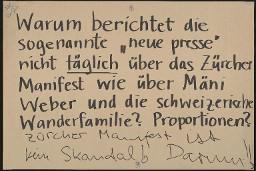 Warum berichtet die
sogenannte „neue presse"
nicht täglich über das Zürcher
Manifest wie über Mäni
Weber und die schweizerische
Wanderfamilie? Proportionen?
Zürcher Manifest ist
kein Skandal! Darum!